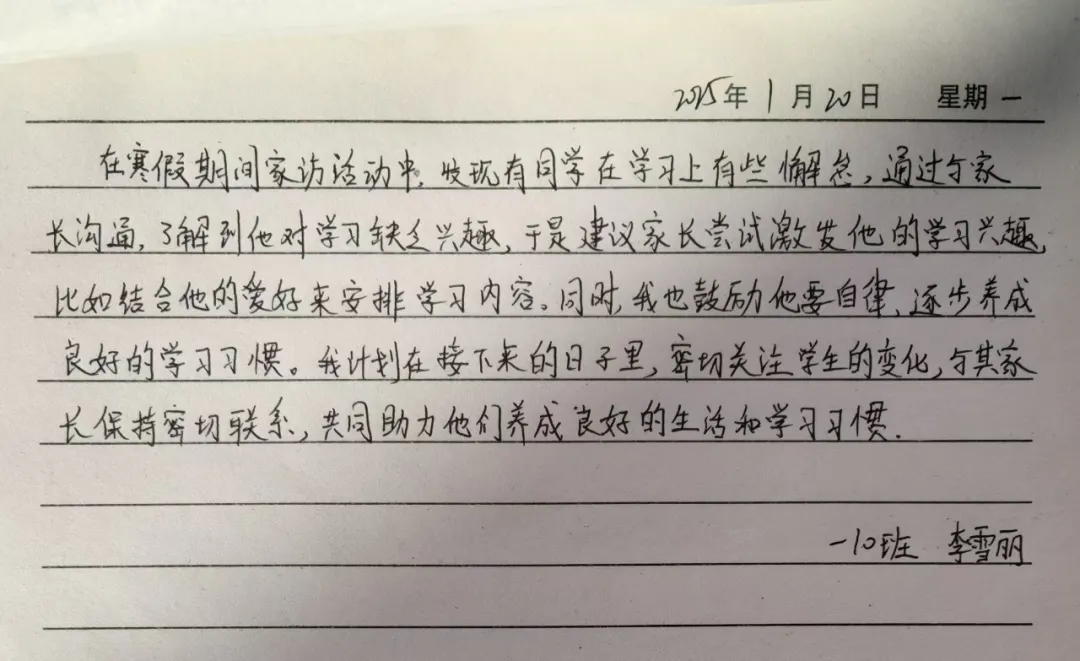 2025年 1月 20日 星期一
在寒假期间家访活动中,发现有同学在学习上有些懈怠,通过与家
长沟通,了解到他对学习缺乏兴趣,于是建议家长尝试激发他的学习兴趣,
比如结合他的爱好来安排学习内容。同时,我也鼓励他要自律,逐步养成
良好的学习习惯。我计划在接下来的日子里,密切关注学生的变化,与其家
长保持密切联系,共同助力他们养成良好的生活和学习习惯.
一10班 李雪丽